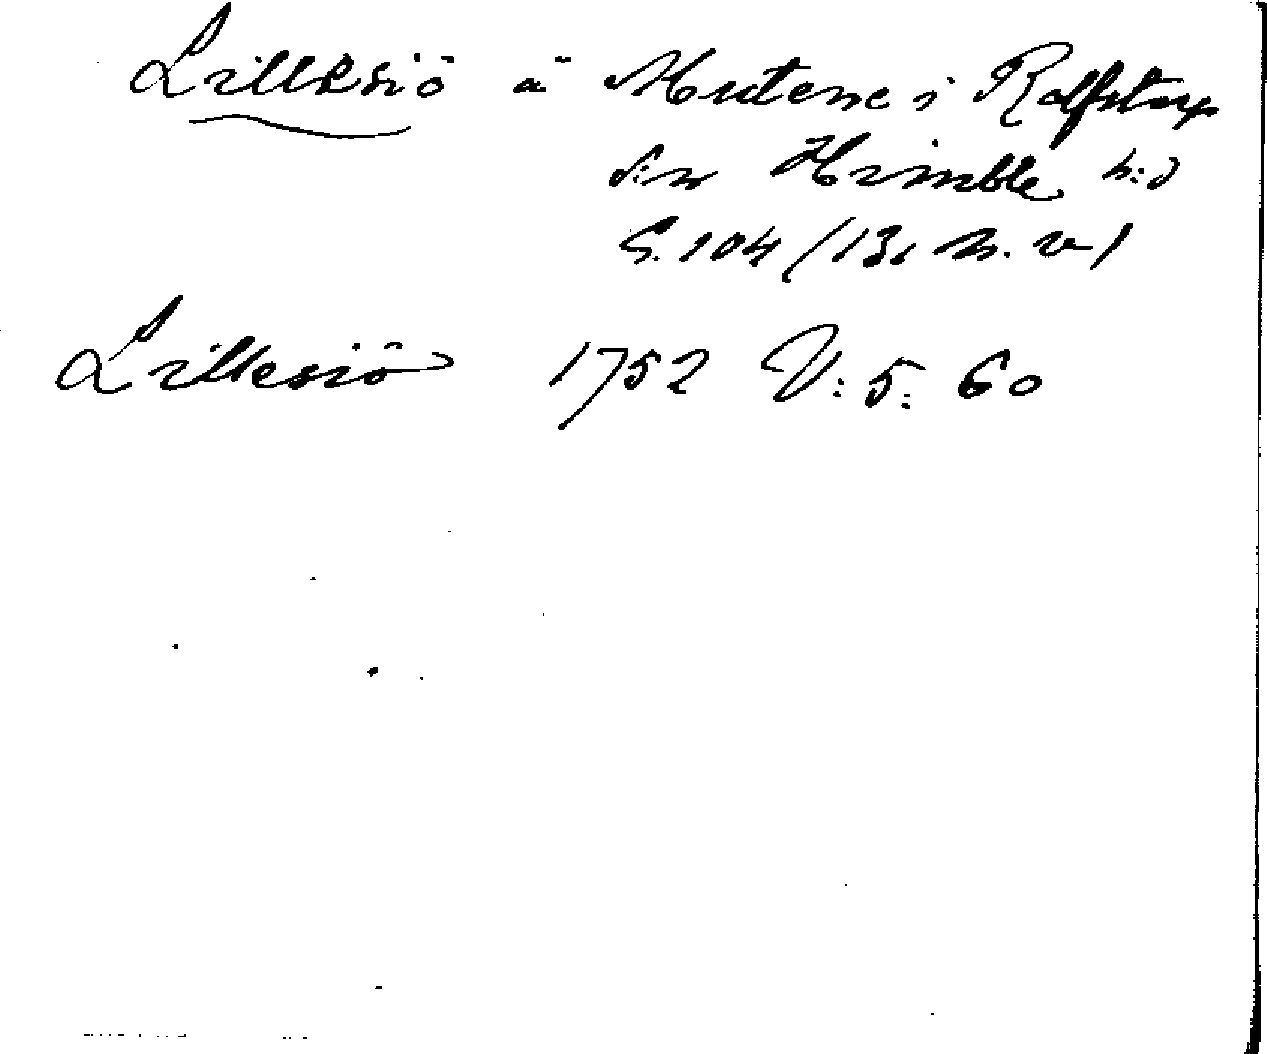 Lillesiö ä Mutene i Rolfstorp
s:n Himble h:d
G. 104 (13,
Lillesiö 1752 V: 5: 60